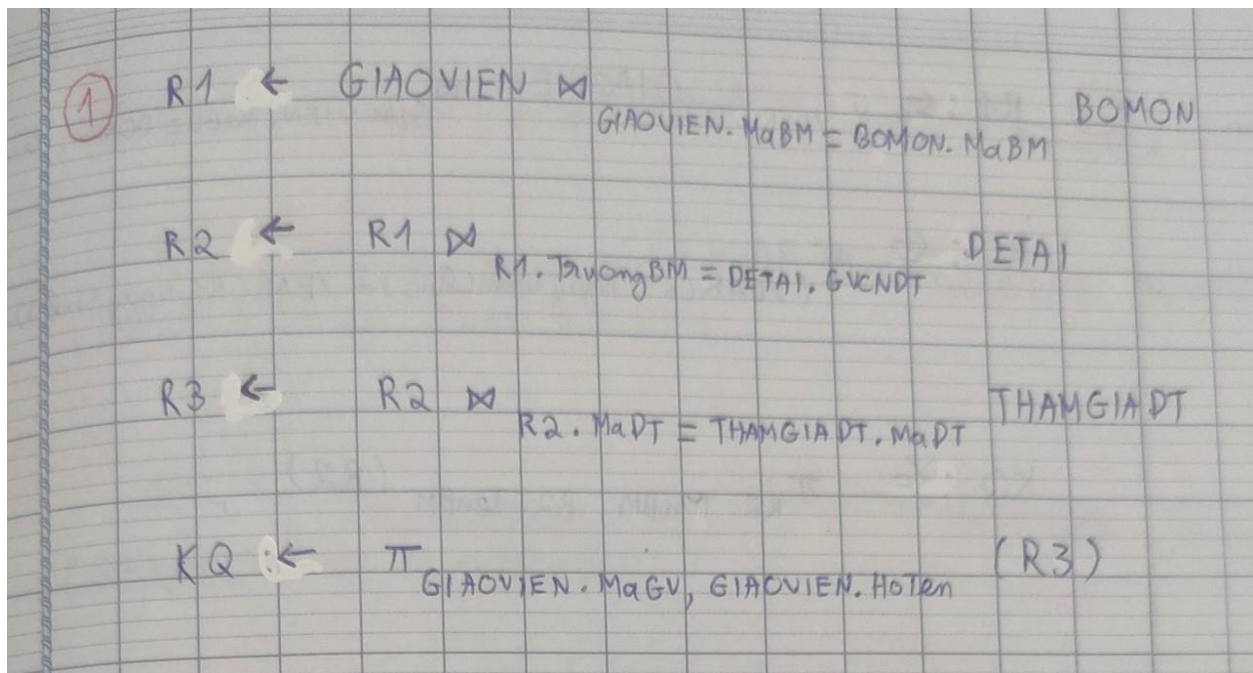 1 R1 ← GIAOVIEN ⋈ GIAOVIEN.MaBM = BOMON.MaBM BOMON
R2 ← R1 ⋈ R1.TruongBM = DETAI.GVCNDT DETAI
R3 ← R2 ⋈ R2.MaDT = THAMGIADT.MaDT THAMGIADT
KQ :← π GIAOVIEN.MaGV, GIAOVIEN.HoTen (R3)